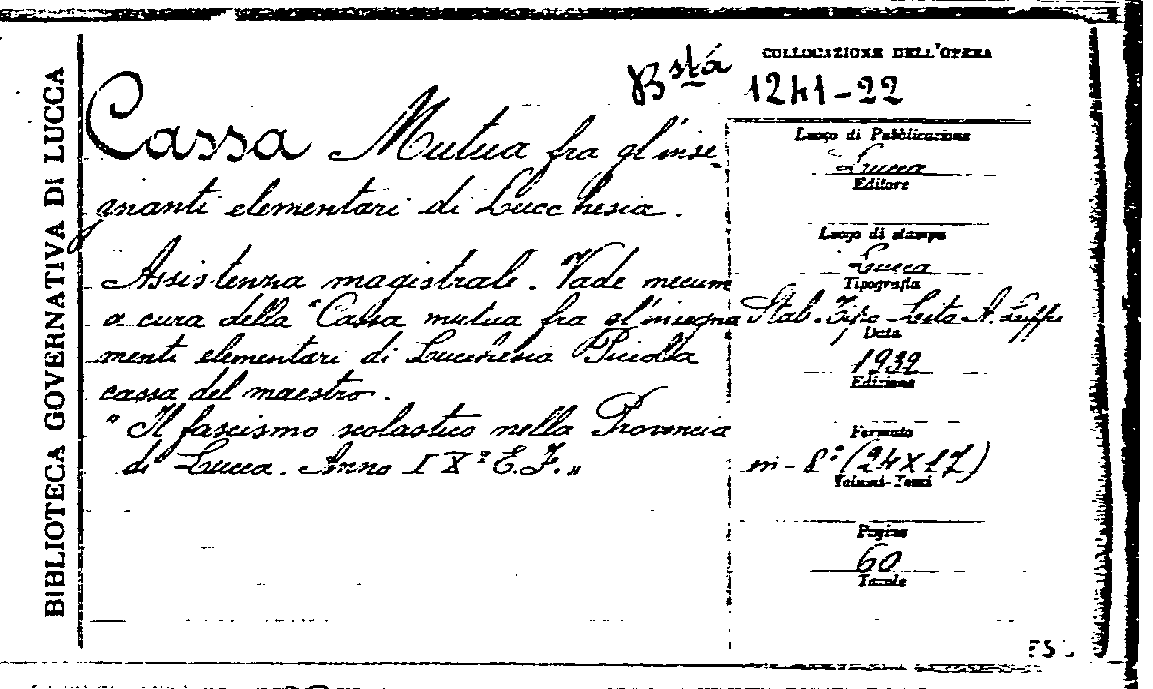 BIBLIOTECA GOVERNATIVA DI LUCCA
COLLOCAZIONE DELL'OPERA
Bstá 1241-22
Cassa Mutua fra gl'inse-
gnanti elementari di Lucchesia.
Assistenza magistrale. Vade mecum
a cura della "Cassa mutua fra gl'insegna
menti elementari di Lucchesia Piccola
cassa del maestro.
" Il fascismo scolastico nella Provincia
di Lucca. Anno IXº E.F."
Luogo di Pubblicazione
Lucca
Editore
Luogo di stampa
Lucca
Tipografia
Stab. Tipo-Lito A.
Data
1932
Edizione
Formato
in-8º (24x17)
Volumi-Tomi
Pagine
60
Tavole